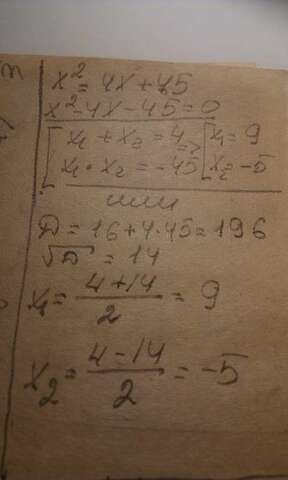 x² = 4x + 45
x² - 4x - 45 = 0
[ x₁ + x₂ = 4 => [ x₁ = 9
x₁ · x₂ = -45 x₂ = -5
или
D = 16 + 4 · 45 = 196
√D = 14
x₁ = (4 + 14)/2 = 9
x₂ = (4 - 14)/2 = -5